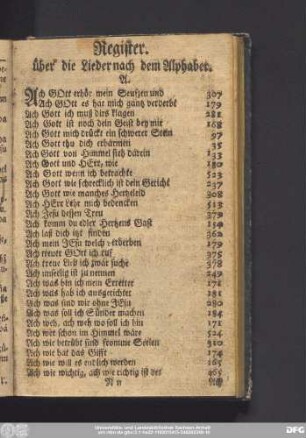 Register.
über die Lieder nach dem Alphabet.
A.
Ach GOtt erhör mein Seufzen und 307
Ach GOtt es hat mich gantz verderbt 179
Ach Gott ich muß dirs klagen 281
Ach Gott ist noch dein Geist bey mir 168
Ach Gott mich drückt ein schwerer Stein 97
Ach Gott thu dich erbarmen 35
Ach Gott von Himmel sieh darein 133
Ach Gott und HErr, wie 180
Ach Gott wenn ich betrachte 523
Ach Gott wie schrecklich ist dein Gericht 237
Ach Gott wie manches Hertzeleid 308
Ach HErr lehr mich bedencken 513
Ach JEsu dessen Treu 379
Ach komm du edler Hertzens Gast
Ach laß dich itzt finden 362
Ach mein JEsu welch verderben 179
Ach treuer GOtt ich ruf 375
Ach treue Lieb ich zwar suche 378
Ach unselig ist zu nennen 249
Ach was bin ich mein Erretter 171
Ach was hab ich ausgerichtet 181
Ach was sind wir ohne JEsu 280
Ach was soll ich Sünder machen 184
Ach weh, ach weh wo soll ich hin 171
Ach wer schon im Himmel wäre 524
Ach wie betrübt sind fromme Seelen 310
Ach wie hat das Gifft 174
Ach wie will es endlich werden 165
Ach wie wichtig, ach wie richtig ist der 465
N n Ach